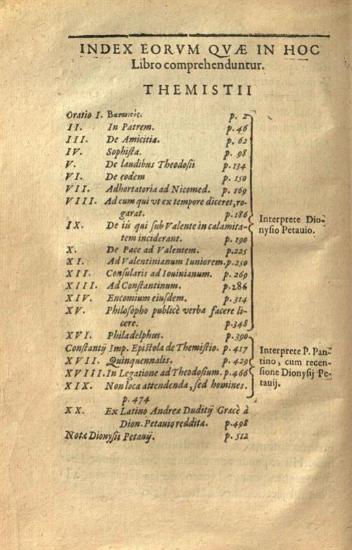 INDEX EORVM QVÆ IN HOC
Libro comprehenduntur.
THEMISTII
Oratio I. p. 2
II. In Patrem. p. 46
III. De Amicitia. p. 62
IV. Sophista. p. 98
V. De laudibus Theodosii p. 134
VI. De eodem p. 150
VII. Adhortatoria ad Nicomed. p. 169
VIII. Ad eum qui vt ex tempore diceret, ro-
garat. p. 186
IX. De iis qui sub Valente in calamita-
tem inciderant. p. 190
Interprete Dio-
nysio Petauio.
X. De Pace ad Valentem. p. 225
XI. Ad Valentinianum Iuniorem. p. 250
XII. Consularis ad Iouinianum. p. 269
XIII. Ad Constantinum. p. 286
XIV. Encomium eiusdem. p. 314
XV. Philosopho publicè verba facere li-
cere. p. 348
XVI. Philadelphus. p. 390
Constantij Imp. Epistola de Themistio. p. 417
XVII. Quinquennalis. p. 420
XVIII. In Legatione ad Theodosium. p. 466
XIX. Non loca attendenda, sed homines.
p. 474
Interprete P. Pan-
tino, cum recen-
sione Dionysij Pe-
tauij.
XX. Ex Latino Andreæ Duditij Græcè à
Dion. Petauio reddita. p. 498
Notæ Dionysii Petauij. p. 512